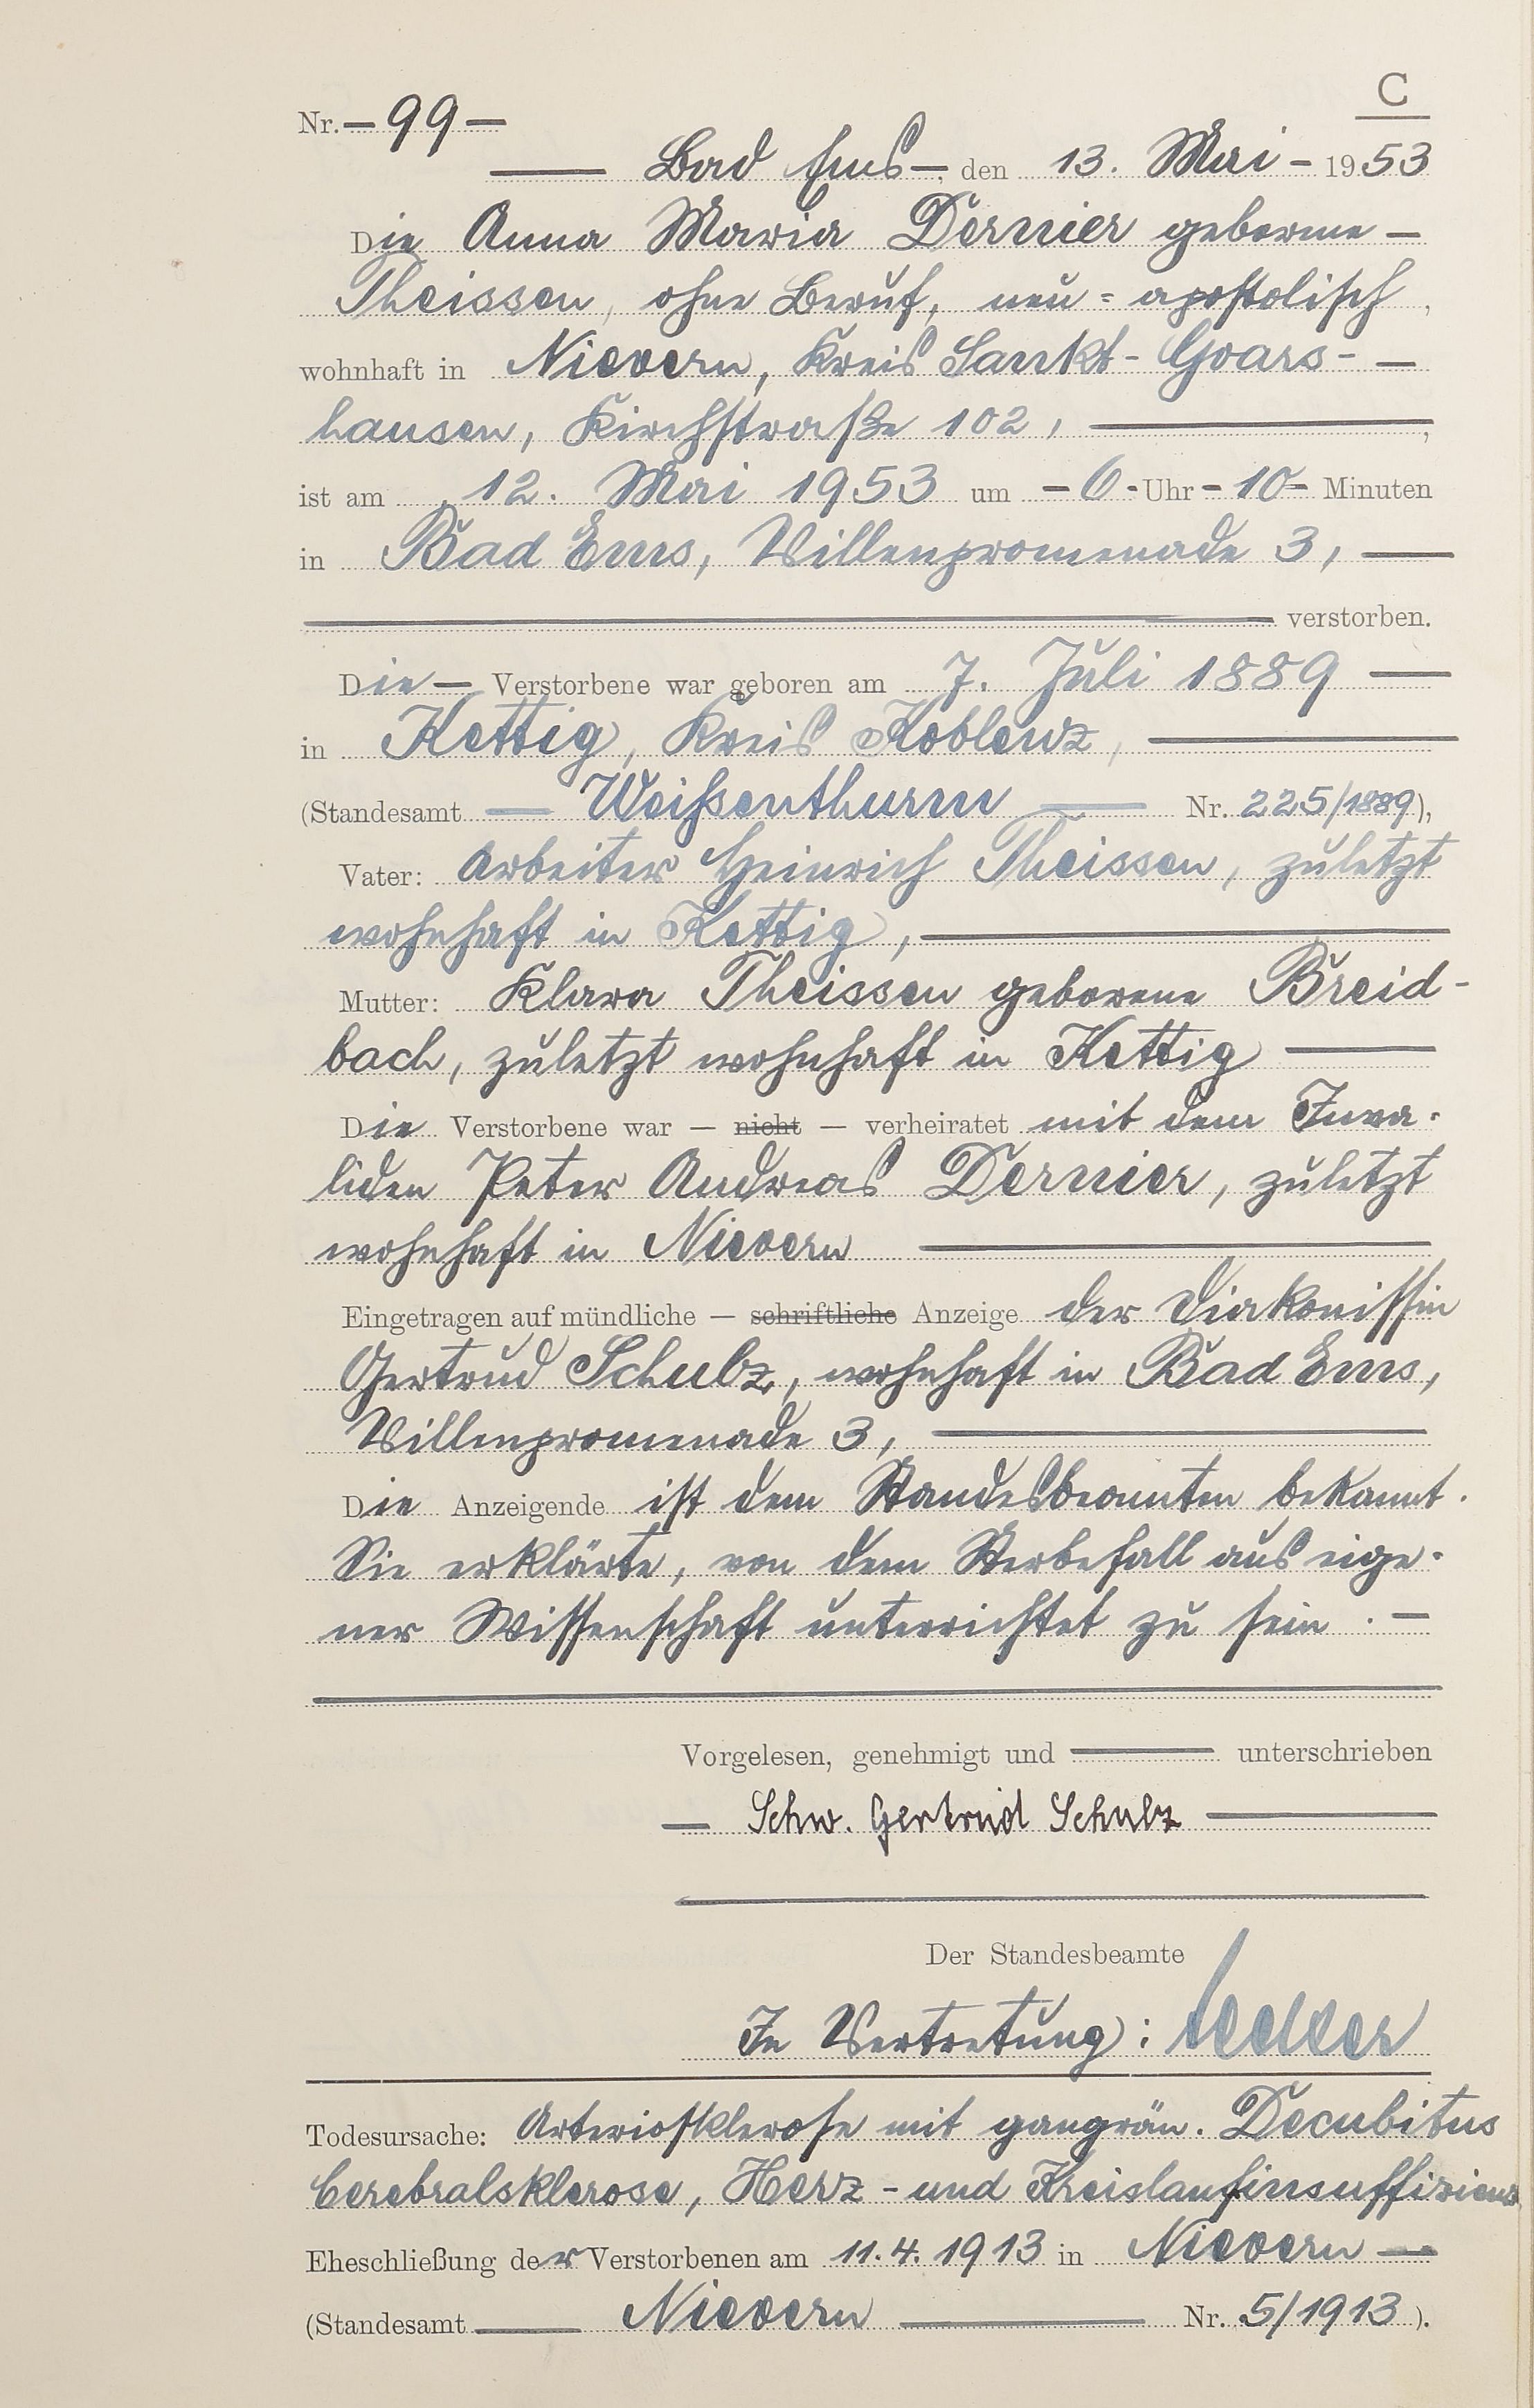 C
Nr. - 99 -
Bad Ems -, den 13. Mai - 1953
Die Anna Maria Dernier geborene -
Theissen, ohne Beruf, neu = apostolisch,
wohnhaft in Nievern, Kreis Sankt - Goars - -
hausen, Kirchstraße 102,
ist am 12. Mai 1953 um - 6 - Uhr - 10 - Minuten
in Bad Ems, Villenpromenade 3, -
verstorben.
Die - Verstorbene war geboren am 7. Juli 1889 -
in Kettig, Kreis Koblenz,
(Standesamt - Weißenthurm - Nr. 225/1889),
Vater: Arbeiter Heinrich Theissen, zuletzt
wohnhaft in Kettig,
Mutter: Klara Theissen geborene Breid-
bach, zuletzt wohnhaft in Kettig -
Die Verstorbene war — nicht — verheiratet mit dem Inva-
liden Peter Andreas Dernier, zuletzt
wohnhaft in Nievern
Eingetragen auf mündliche — schriftliche Anzeige der Diakonissin
Gertrud Schulz, wohnhaft in Bad Ems,
Villenpromenade 3,
Die Anzeigende ist dem Standesbeamten bekannt.
Sie erklärte, von dem Sterbefall aus eige-
ner Wissenschaft unterrichtet zu sein. -
Vorgelesen, genehmigt und — unterschrieben
- Schw. Gertrud Schulz
Der Standesbeamte
In Vertretung:
Todesursache: Arteriosklerose mit gangrän. Decubitus
Cerebralsklerose, Herz - und Kreislaufinsuffizienz
Eheschließung der Verstorbenen am 11.4.1913 in Nievern -
(Standesamt Nievern Nr. 5/1913).